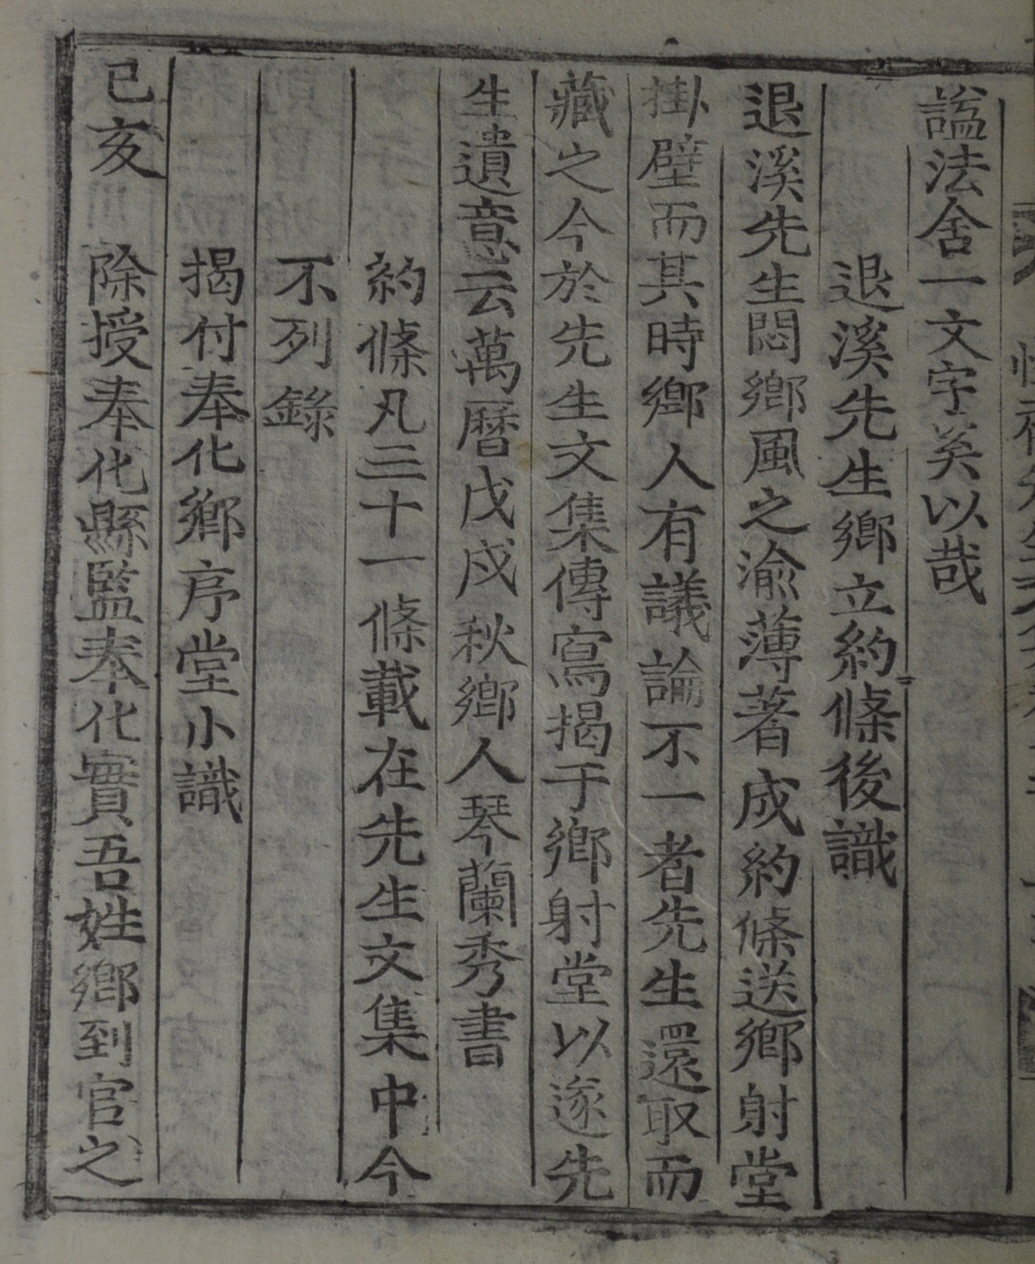 謚法舍一文字奚以哉
退溪先生鄉立約條後識
退溪先生悶鄉風之渝薄著成約條送鄉射堂
掛壁而其時鄉人有議論不一者先生還取而
藏之今於先生文集傳寫揭于鄉射堂以遂先
生遺意云萬曆戊戌秋鄉人琴蘭秀書
約條凡三十一條載在先生文集中今
不列錄
揭付奉化鄉序堂小識
己亥 除授奉化縣監奉化實吾姓鄉到官之